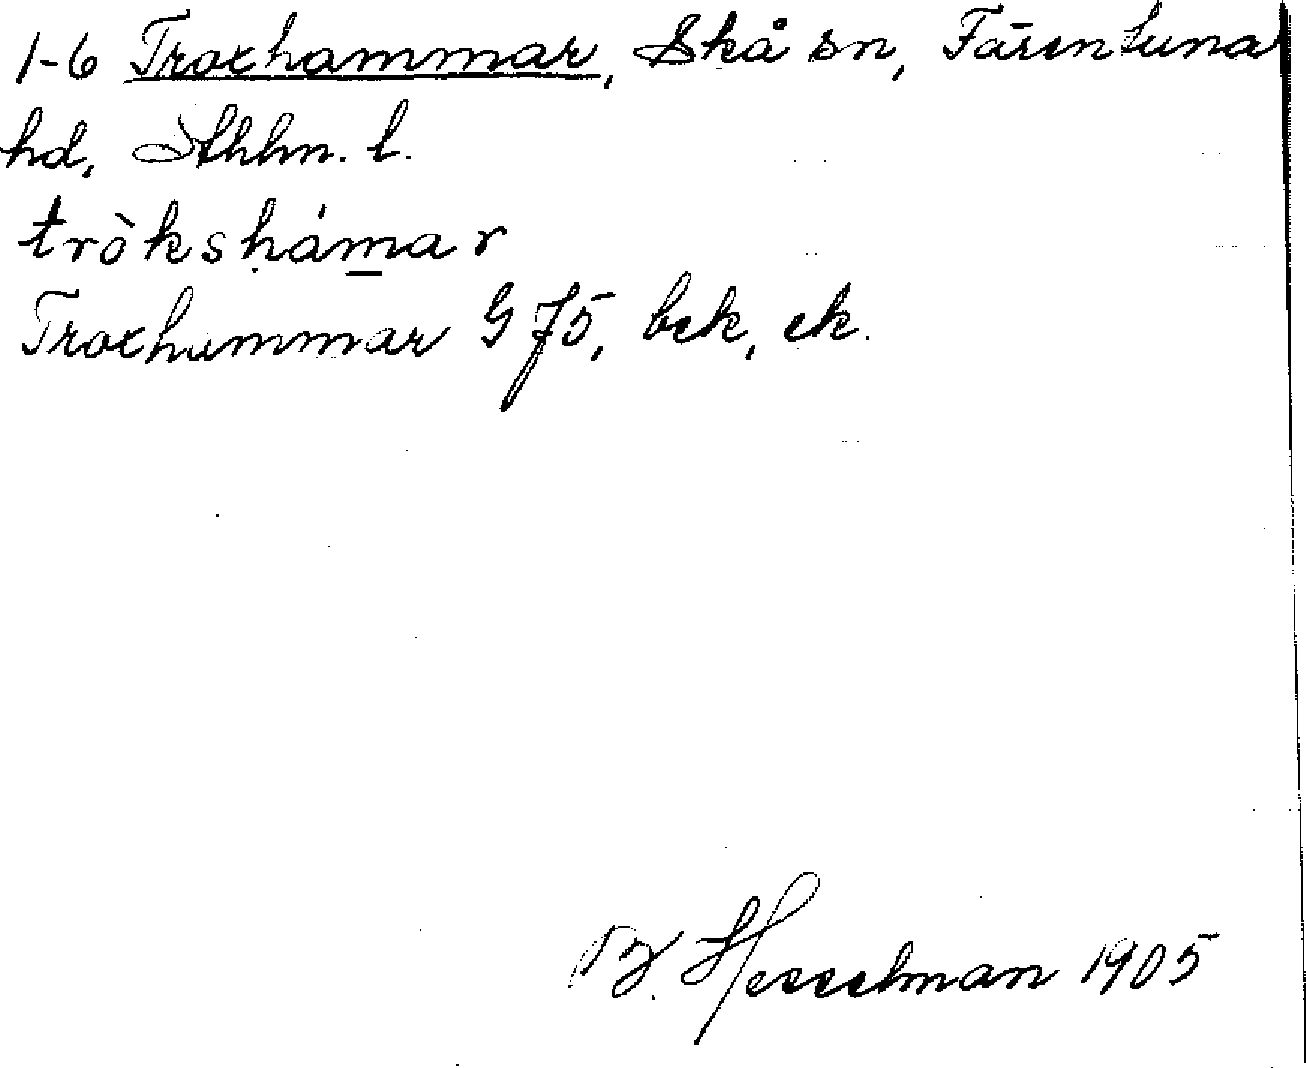 1-6 Troxhammar, Skå sn, Färentuna
hd, Sthlm. l.
tròkshámar
Troxhammar G J5, bek, ek.
B. Hesselman 1905